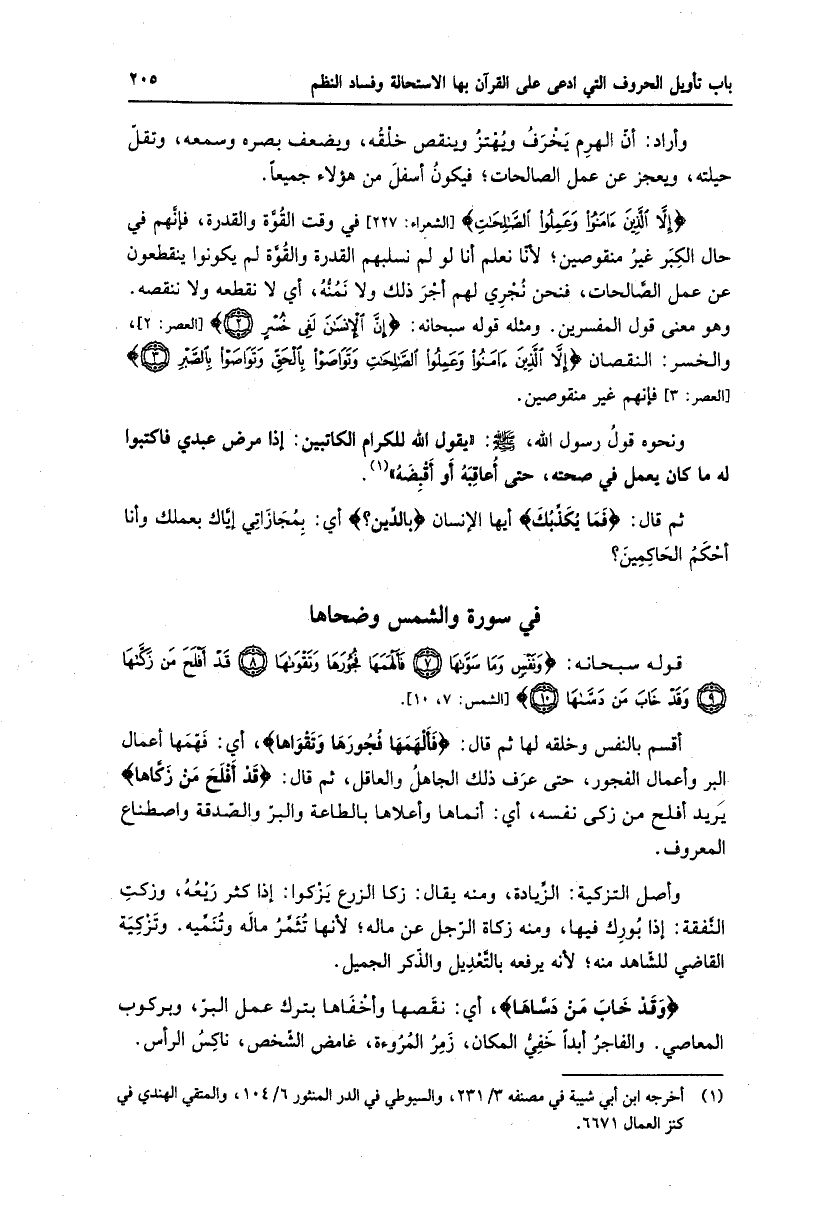 باب تأويل الحروف التي ادعى على القرآن بها الاستحالة وفساد النظم ٢٠٥
وأراد: أنّ الهرِم يَخْرَفُ ويُهْتَزُ وينقص خلْقُه، ويضعف بصره وسمعه، وتقلّ
حيلته، ويعجز عن عمل الصالحات؛ فيكونُ أسفلَ من هؤلاء جميعاً.
﴿إِلَّا ٱلَّذِينَ ءَامَنُوا۟ وَعَمِلُوا۟ ٱلصَّٰلِحَٰتِ﴾ [الشعراء: ٢٢٧] في وقت القُوَّة والقدرة، فإنَّهم في
حال الكِبَر غيرُ منقوصين؛ لأنّا نعلم أنا لو لم نسلبهم القدرة والقُوَّة لم يكونوا ينقطعون
عن عمل الصَّالحات، فنحن نُجْرِي لهم أجْرَ ذلك ولا نَمُنُّهُ، أي لا نقطعه ولا ننقصه.
وهو معنى قول المفسرين. ومثله قوله سبحانه: ﴿إِنَّ ٱلْإِنسَٰنَ لَفِى خُسْرٍ ٢﴾ [العصر: ٢]،
والخسر: النقصان ﴿إِلَّا ٱلَّذِينَ ءَامَنُوا۟ وَعَمِلُوا۟ ٱلصَّٰلِحَٰتِ وَتَوَاصَوْا۟ بِٱلْحَقِّ وَتَوَاصَوْا۟ بِٱلصَّبْرِ ٣﴾
[العصر: ٣] فإنهم غير منقوصين.
ونحوه قولُ رسول الله، ﷺ: «يقول الله للكرام الكاتبين: إذا مرض عبدي فاكتبوا
له ما كان يعمل في صحته، حتى أُعاقِبَهُ أو أَقْبِضَهُ»(١).
ثم قال: ﴿فَمَا يُكَذِّبُكَ﴾ أيها الإنسان ﴿بالدِّين؟﴾ أي: بِمُجَازَاتِي إيَّاك بعملك وأنا
أحْكَمُ الحَاكِمِينَ؟
في سورة والشمس وضحاها
قوله سبحانه: ﴿وَنَفْسٍ وَمَا سَوَّىٰهَا ٧ فَأَلْهَمَهَا فُجُورَهَا وَتَقْوَىٰهَا ٨ قَدْ أَفْلَحَ مَن زَكَّىٰهَا
٩ وَقَدْ خَابَ مَن دَسَّىٰهَا ١٠﴾ [الشمس: ٧، ١٠].
أقسم بالنفس وخلقه لها ثم قال: ﴿فَأَلْهَمَهَا فُجُورَهَا وَتَقْوَاها﴾، أي: فَهَّمَها أعمال
البر وأعمال الفجور، حتى عرَف ذلك الجاهلُ والعاقل، ثم قال: ﴿قَدْ أَفْلَحَ مَنْ زَكَّاها﴾
يَريد أفلح من زكى نفسه، أي: أنماها وأعلاها بالطاعة والبرّ والصّدقة واصطناع
المعروف.
وأصل التزكية: الزِّيادة، ومنه يقال: زكا الزرع يَزْكوا: إذا كثر رَيْعُهُ، وزكتِ
النَّفقة: إذا بُورِك فيها، ومنه زكاة الرّجل عن ماله؛ لأنها تُثَمِّرُ مالَه وتُنَمِّيه. وتَزْكِيَة
القاضي للشَّاهد منه؛ لأنه يرفعه بالتَّعْدِيل والذّكر الجميل.
﴿وَقَدْ خَابَ مَنْ دَسَّاهَا﴾، أي: نقَصها وأخْفَاها بترك عمل البرّ، وبركوب
المعاصي. والفاجرُ أبداً خَفِيُّ المكان، زَمِرُ المُرُوءة، غامض الشّخص، ناكِسُ الرأس.
(١) أخرجه ابن أبي شيبة في مصنفه ٣/ ٢٣١، والسيوطي في الدر المنثور ٦/ ١٠٤، والمتقي الهندي في
كنز العمال ٦٦٧١.